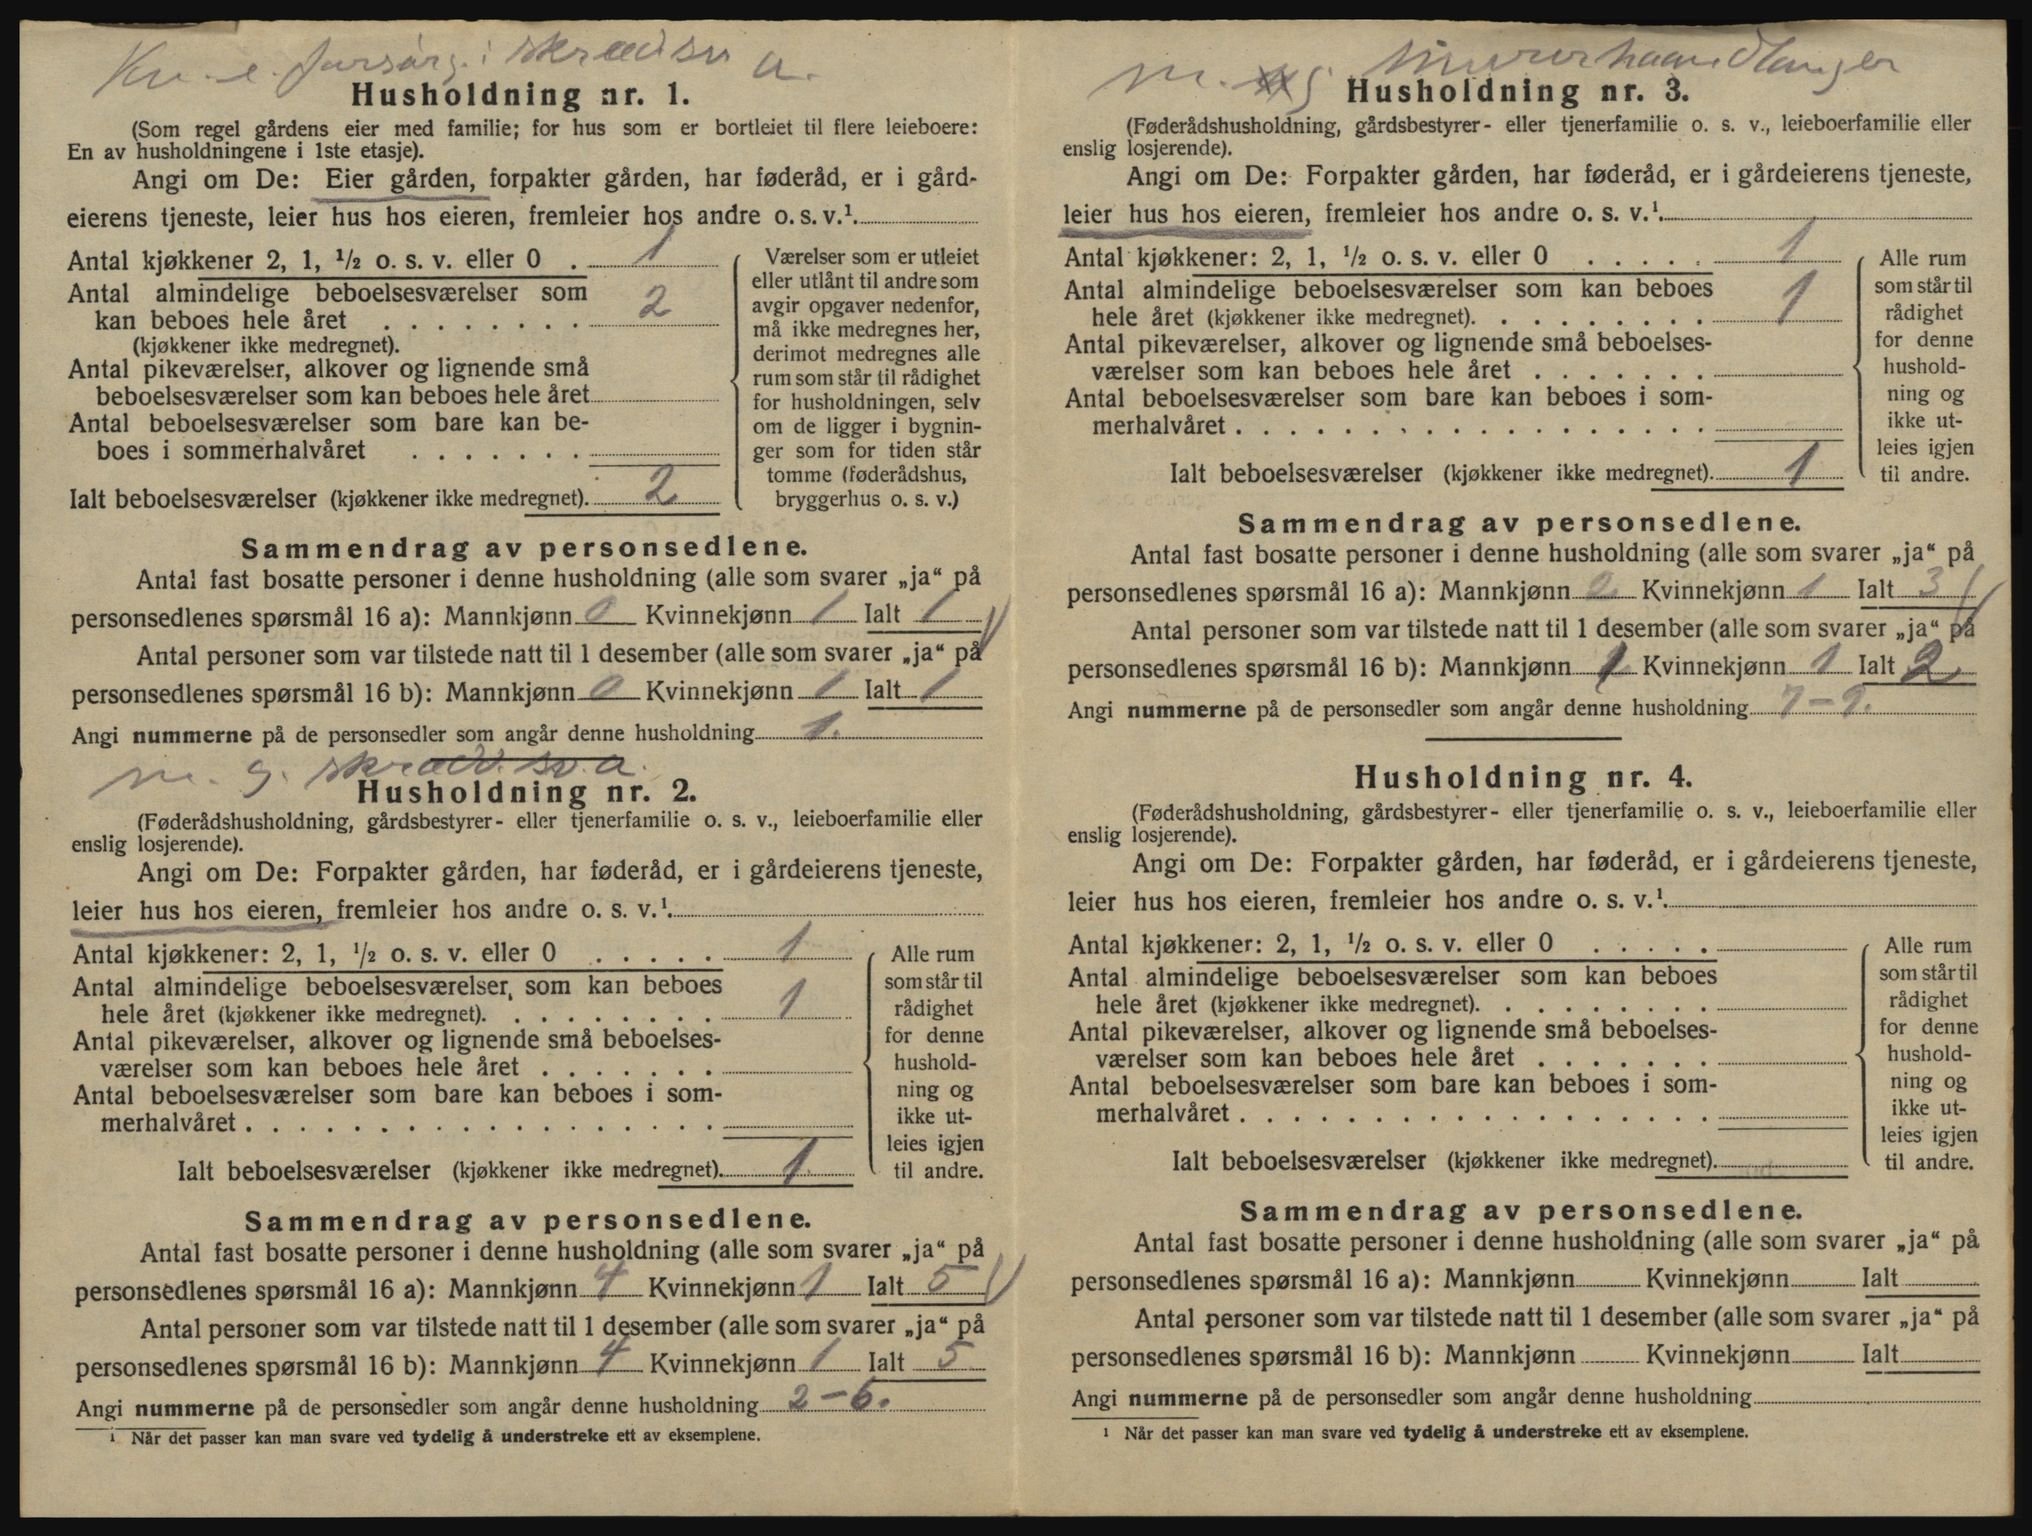 Kv. e. forsørg. i skræds. a.
Husholdning nr. 1.
(Som regel gårdens eier med familie; for hus som er bortleiet til flere leieboere:
En av husholdningene i 1ste etasje).
Angi om De: Eier gården, forpakter gården, har føderåd, er i gård-
eierens tjeneste, leier hus hos eieren, fremleier hos andre o. s. v.¹.
Antal kjøkkener 2, 1, ½ o. s. v. eller 0 . 1
Antal almindelige beboelsesværelser som
kan beboes hele året . . . . . . . . 2
(kjøkkener ikke medregnet).
Antal pikeværelser, alkover og lignende små
beboelsesværelser som kan beboes hele året
Antal beboelsesværelser som bare kan be-
boes i sommerhalvåret . . . . . . .
Ialt beboelsesværelser (kjøkkener ikke medregnet). 2
Værelser som er utleiet
eller utlånt til andre som
avgir opgaver nedenfor,
må ikke medregnes her,
derimot medregnes alle
rum som står til rådighet
for husholdningen, selv
om de ligger i bygnin-
ger som for tiden står
tomme (føderådshus,
bryggerhus o. s. v.)
Sammendrag av personsedlene.
Antal fast bosatte personer i denne husholdning (alle som svarer „ja“ på
personsedlenes spørsmål 16 a): Mannkjønn 0 Kvinnekjønn 1 Ialt 1
Antal personer som var tilstede natt til 1 desember (alle som svarer „ja“ på
personsedlenes spørsmål 16 b): Mannkjønn 0 Kvinnekjønn 1 Ialt 1
Angi nummerne på de personsedler som angår denne husholdning 1.
m. g. skræd. sv. a.
Husholdning nr. 2.
(Føderådshusholdning, gårdsbestyrer- eller tjenerfamilie o. s. v., leieboerfamilie eller
enslig losjerende).
Angi om De: Forpakter gården, har føderåd, er i gårdeierens tjeneste,
leier hus hos eieren, fremleier hos andre o. s. v.¹.
Antal kjøkkener: 2, 1, ½ o. s. v. eller 0 . . . . . 1
Antal almindelige beboelsesværelser som kan beboes
hele året (kjøkkener ikke medregnet). . . . . . . . . 1
Antal pikeværelser, alkover og lignende små beboelses-
værelser som kan beboes hele året . . . . . . .
Antal beboelsesværelser som bare kan beboes i som-
merhalvåret . . . . . . . . . . . . . . . . . .
Ialt beboelsesværelser (kjøkkener ikke medregnet). 1
Alle rum
som står til
rådighet
for denne
hushold-
ning og
ikke ut-
leies igjen
til andre.
Sammendrag av personsedlene.
Antal fast bosatte personer i denne husholdning (alle som svarer „ja“ på
personsedlenes spørsmål 16 a): Mannkjønn 4 Kvinnekjønn 1 Ialt 5
Antal personer som var tilstede natt til 1 desember (alle som svarer „ja“ på
personsedlenes spørsmål 16 b): Mannkjønn 4 Kvinnekjønn 1 Ialt 5
Angi nummerne på de personsedler som angår denne husholdning 2-6.
¹ Når det passer kan man svare ved tydelig å understreke ett av eksemplene.
m. g. murerhaandlanger
Husholdning nr. 3.
(Føderådshusholdning, gårdsbestyrer- eller tjenerfamilie o. s. v., leieboerfamilie eller
enslig losjerende).
Angi om De: Forpakter gården, har føderåd, er i gårdeierens tjeneste,
leier hus hos eieren, fremleier hos andre o. s. v.¹.
Antal kjøkkener: 2, 1, ½ o. s. v. eller 0 . . . . . 1
Antal almindelige beboelsesværelser som kan beboes
hele året (kjøkkener ikke medregnet). . . . . . . . . 1
Antal pikeværelser, alkover og lignende små beboelses-
værelser som kan beboes hele året . . . . . . .
Antal beboelsesværelser som bare kan beboes i som-
merhalvåret . . . . . . . . . . . . . . . . . .
Ialt beboelsesværelser (kjøkkener ikke medregnet). 1
Alle rum
som står til
rådighet
for denne
hushold-
ning og
ikke ut-
leies igjen
til andre.
Sammendrag av personsedlene.
Antal fast bosatte personer i denne husholdning (alle som svarer „ja“ på
personsedlenes spørsmål 16 a): Mannkjønn 2 Kvinnekjønn 1 Ialt 3
Antal personer som var tilstede natt til 1 desember (alle som svarer „ja“ på
personsedlenes spørsmål 16 b): Mannkjønn 1 Kvinnekjønn 1 Ialt 2
Angi nummerne på de personsedler som angår denne husholdning 7-9.
Husholdning nr. 4.
(Føderådshusholdning, gårdsbestyrer- eller tjenerfamilie o. s. v., leieboerfamilie eller
enslig losjerende).
Angi om De: Forpakter gården, har føderåd, er i gårdeierens tjeneste,
leier hus hos eieren, fremleier hos andre o. s. v.¹.
Antal kjøkkener: 2, 1, ½ o. s. v. eller 0 . . . . .
Antal almindelige beboelsesværelser som kan beboes
hele året (kjøkkener ikke medregnet). . . . . . . . .
Antal pikeværelser, alkover og lignende små beboelses-
værelser som kan beboes hele året . . . . . . .
Antal beboelsesværelser som bare kan beboes i som-
merhalvåret . . . . . . . . . . . . . . . . . .
Ialt beboelsesværelser (kjøkkener ikke medregnet).
Alle rum
som står til
rådighet
for denne
hushold-
ning og
ikke ut-
leies igjen
til andre.
Sammendrag av personsedlene.
Antal fast bosatte personer i denne husholdning (alle som svarer „ja“ på
personsedlenes spørsmål 16 a): Mannkjønn Kvinnekjønn Ialt
Antal personer som var tilstede natt til 1 desember (alle som svarer „ja“ på
personsedlenes spørsmål 16 b): Mannkjønn Kvinnekjønn Ialt
Angi nummerne på de personsedler som angår denne husholdning
¹ Når det passer kan man svare ved tydelig å understreke ett av eksemplene.